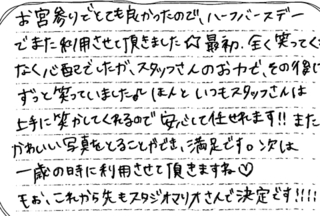 お宮参りでとても良かったので、ハーフバースデー
でまた利用させて頂きました☆最初、全く笑ってく
なく心配でしたが、スタッフさんのお力で、その後は
ずっと笑っていました。ほんといつもスタッフさんは
上手に笑かしてくれるので安心して任せれます!!また
かわいい写真をとることができ、満足です。次は
一歳の時に利用させて頂きますね♡
もぉ、これから先もスタジオマリオさんで決定です!!!!